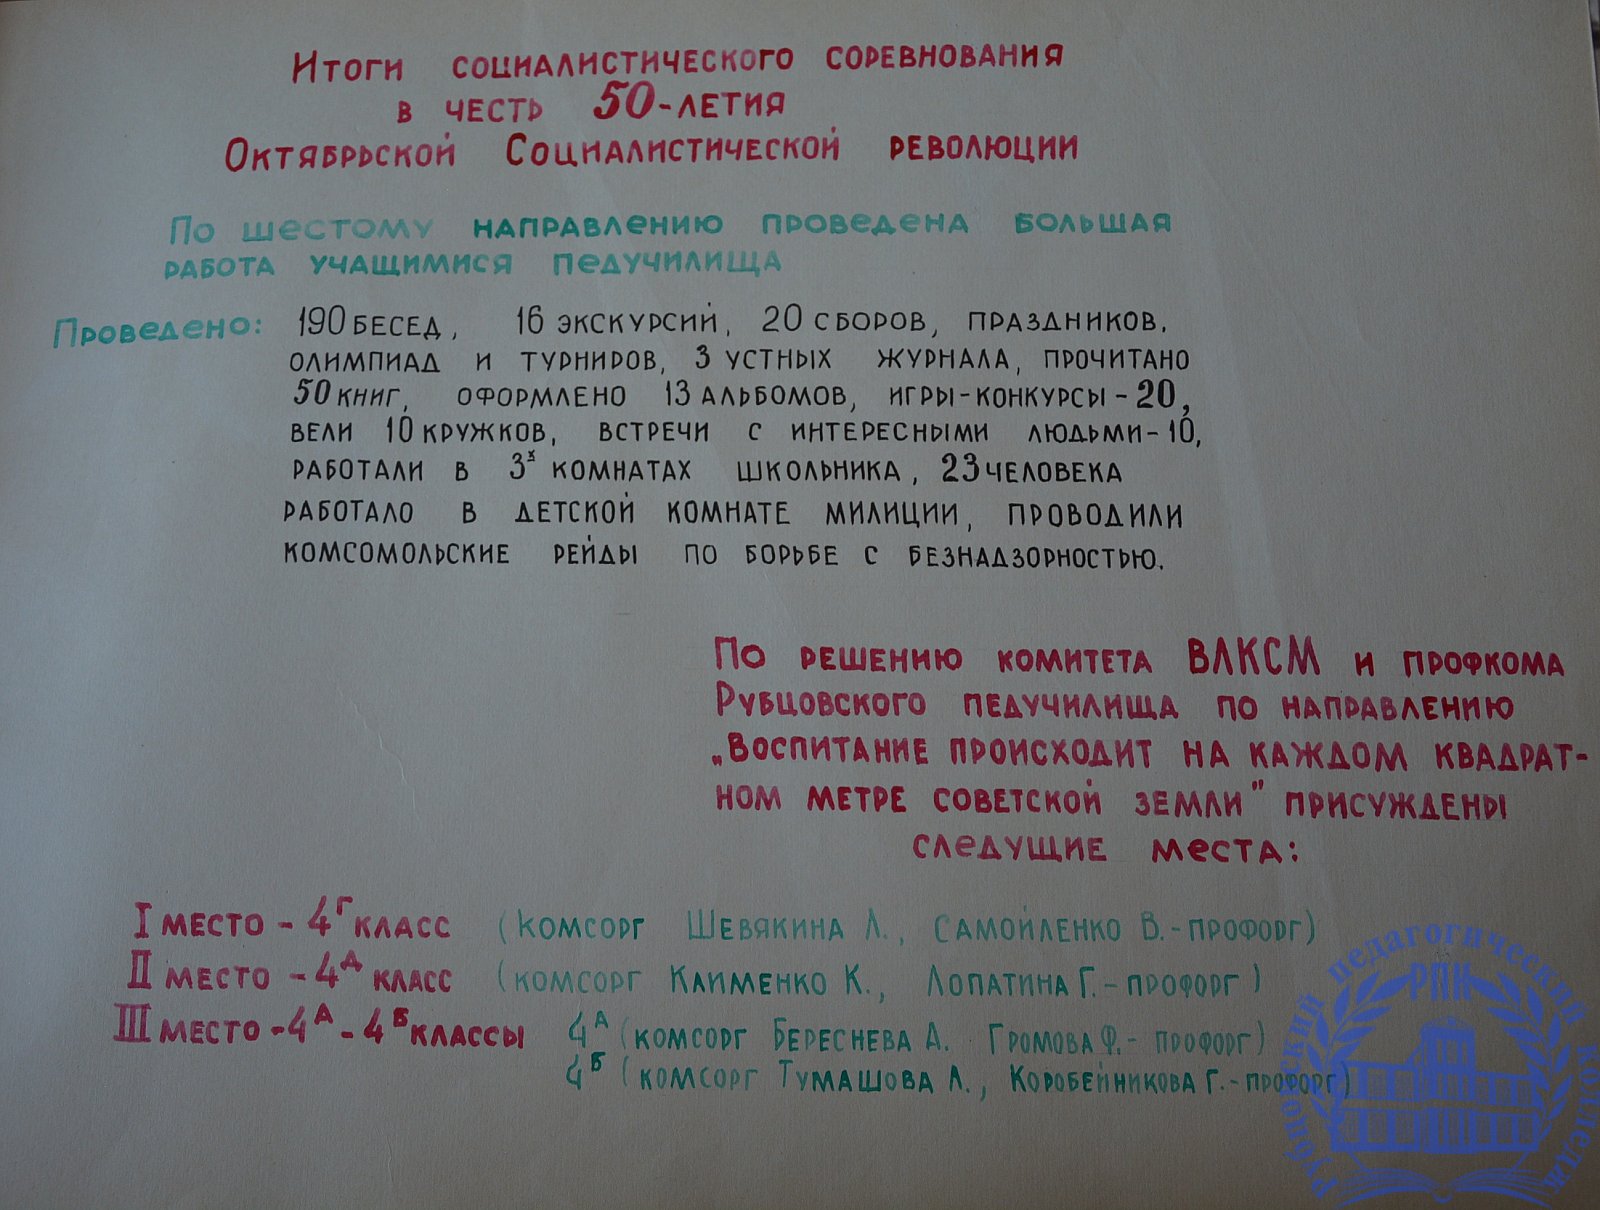 Итоги социалистического соревнования
в честь 50-летия
Октябрьской Социалистической революции
По шестому направлению проведена большая
работа учащимися педучилища
Проведено: 190 бесед, 16 экскурсий, 20 сборов, праздников,
олимпиад и турниров, 3 устных журнала, прочитано
50 книг, оформлено 13 альбомов, игры-конкурсы - 20,
вели 10 кружков, встречи с интересными людьми - 10,
работали в 3х комнатах школьника, 23 человека
работало в детской комнате милиции, проводили
комсомольские рейды по борьбе с безнадзорностью.
По решению комитета ВЛКСМ и профкома
Рубцовского педучилища по направлению
„Воспитание происходит на каждом квадрат-
ном метре советской земли" присуждены
следущие места:
I место - 4Г класс (комсорг Шевякина Л., Самойленко В. - профорг)
II место - 4Д класс (комсорг Клименко К., Лопатина Г. - профорг)
III место - 4А - 4Б классы 4А (комсорг Береснева А. Громова Ф. - профорг)
4Б (комсорг Тумашова Л., Коробейникова Г. - профорг)
Рубцовский педагогический колледж
РПК